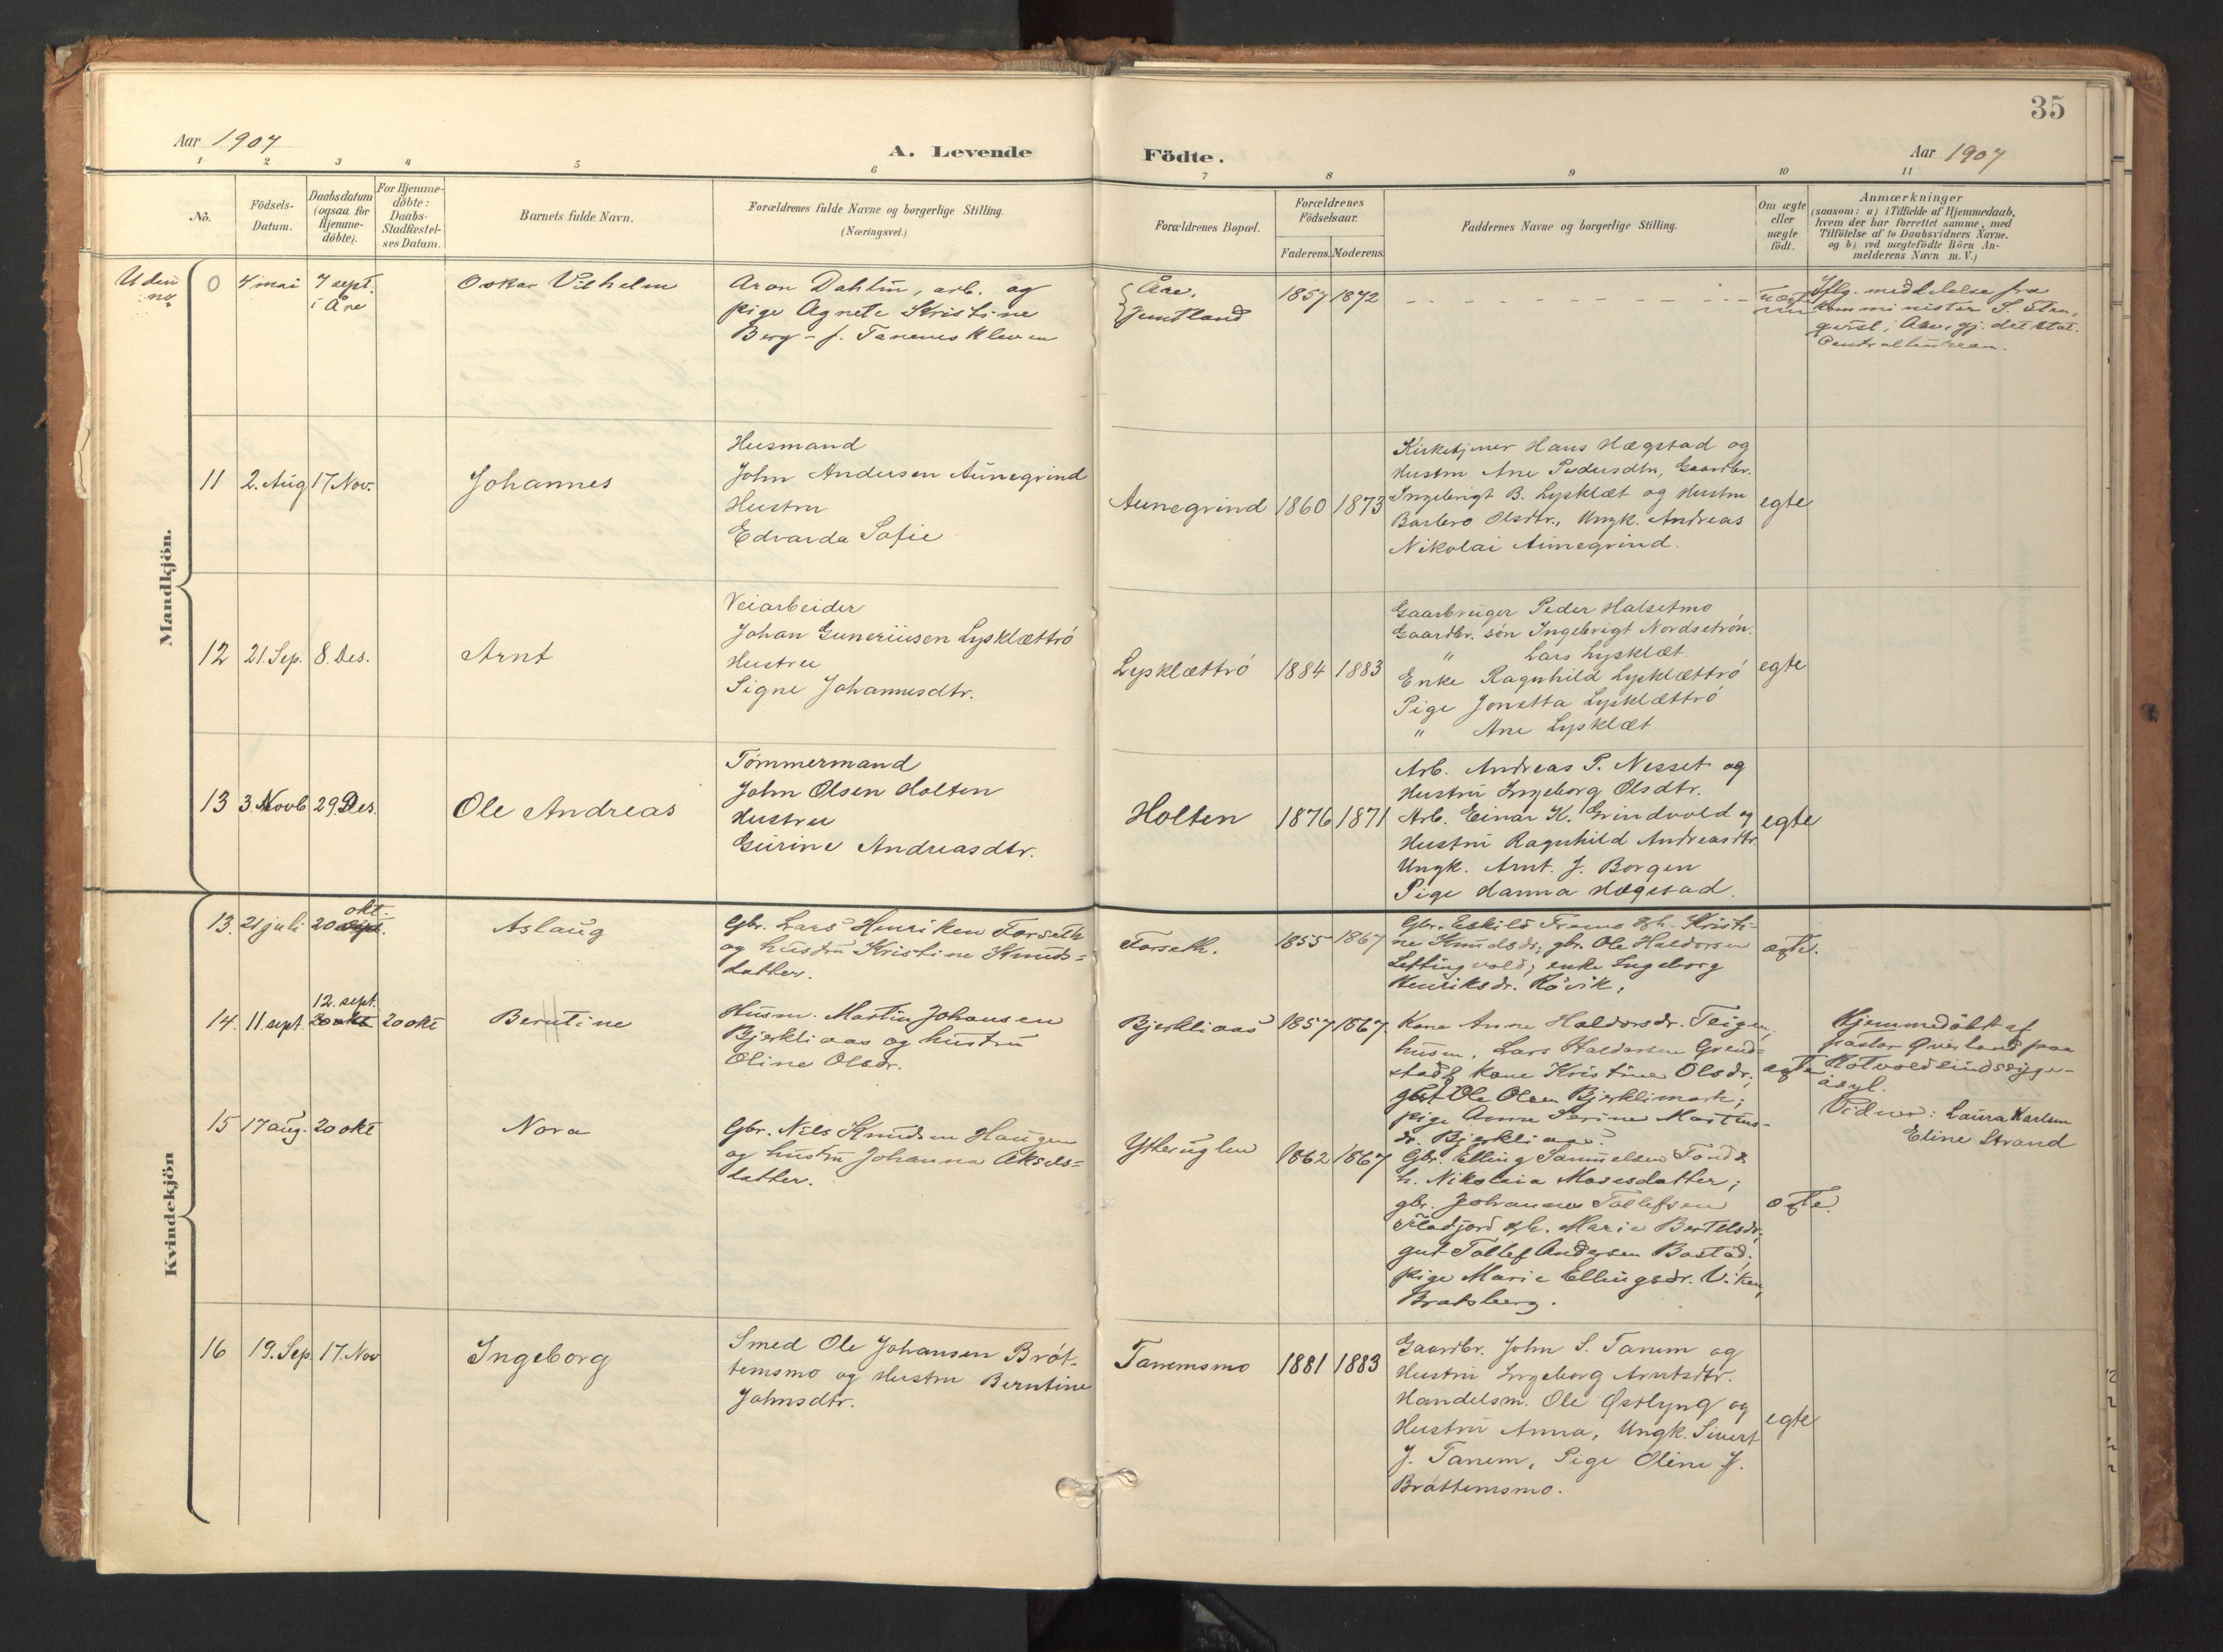 35
Aar 1907
A. Levende Födte.
Aar 1907
1 2 3 4 5 6 7 8 9 10 11
No.
Födsels-
Datum.
Daabsdatum
(ogsaa for
Hjemme-
döbte).
For Hjemme-
döbte:
Daabs-
Stadfæstel-
ses Datum.
Barnets fulde Navn.
Forældrenes fulde Navne og borgerlige Stilling.
(Næringsvei.)
Forældrenes Bopæl.
Forældrenes
Födselsaar.
Faderens. Moderens.
Faddernes Navne og borgerlige Stilling.
Om ægte
eller
uægte
födt.
Anmærkninger
(saasom: a) i Tilfælde af Hjemmedaab,
hvem der har forrettet samme, med
Tilföielse af to Daabsvidners Navne,
og b) ved uægtefödte Börn An-
melderens Navn m. V.)
Mandkjön.
Uden
no
0
4 mai
7 sept.
i Åre
Oskar Vilhelm
Aron Dahlin, arb. og
pige Agnete Kristine
Berg - f. Tanemskleven
Åre,
Jemtland
1857
1872
Iflg. meddelelse fra
komminister S. Sten-
Åre, gj. det stat.
Centralbureau.
11
2. Aug
17 Nov.
Johannes
Husmand
John Andersen Aunegrind
Hustru
Edvarda Sofie
Aunegrind
1860
1873
Kirketjener Hans Hægstad og
Hustru Ane Pedersdtr, Gaardbr.
Ingebrigt B. Lysklæt og Hustru
Barbro Olsdtr., Ungk. Andreas
Nikolai Aunegrind.
egte
12
21. Sep.
8. Des.
Arnt
Veiarbeider
Johan Guneriusen Lysklættrö
Hustru
Signe Johannesdtr.
Lysklættrö
1884
1883
Gaarbruger Peder Halsetmo
Gaardbr. sön Ingebrigt Nordsetrön.
" Lars Lysklæt.
Enke Ragnhild Lysklættrö
Pige Jonetta Lysklættrö
" Ane Lysklæt.
egte
13
3 Novb
29 Des.
Ole Andreas
Tömmermand
John Olsen Holten
Hustru
Gurine Andreasdtr.
Holten
1876
1871
Arb. Andreas P. Nesset og
Hustru Ingeborg Olsdtr.
Arb. Einar K. Grindvold og
Hustru Ragnhild Andreasdtr
Ungk. Arnt. J. Borgen
Pige Hanna Hægstad.
egte
Kvindekjön
13.
21 juli
okt.
20 sept.
Aslaug
Gbr. Lars Henriken Forseth
og hustru Kristine Knuds-
datter.
Forseth.
1855
1867
Gbr. Eskild Tramo & h. Kristi-
ne Knudsdr; gbr. Ole Haldorsen
Leftingvold; enke Ingeborg
Henriksdr. Rövik;
ægte.
14.
11 sept.
12. sept.
20 okt
20 okt
Berntine
Husm. Martin Johansen
Bjerkliaas og hustru
Oline Olsdr.
Bjerkliaas
1857
1867.
Kone Anne Haldorsdr. Teigen;
husm. Lars Haldorsen Grend-
stad & kone Kristine Olsdr.;
gut Ole Olsen Bjerklimark;
pige Anne Serine Martins-
dr. Bjerkliaas.
ægte
Hjemmedöbt af
pastor Øverland paa
Rotvold sindssyge-
asyl.
Vidner: Laura Karlsen
Eline Strand
15
17 aug.
20 okt
Nora
Gbr. Nils Knudsen Haugen
og hustru Johanna Aksels-
datter.
Ytteruglen
1862
1867
Gbr. Elling Samuelsen Tond &
h. Nikolaia Mosesdatter;
gbr. Johannes Tollefsen
Fladjord & h. Marie Bertelsdr;
gut Tollef Andersen Bostad;
pige Marie Ellingsdr. Viken,
Bratsberg.
ægte.
16
19. Sep.
17. Nov
Ingeborg
Smed Ole Johansen Bröt-
temsmo og Hustru Berntine
Johnsdtr.
Tanemsmo
1881
1883
Gaardbr. John S. Tanem og
Hustru Ingeborg Arntsdtr.
Handelsm. Ole Østlyng og
Hustru Anna, Ungk. Sivert
J. Tanem, Pige Oline J.
Bröttemsmo.
egte